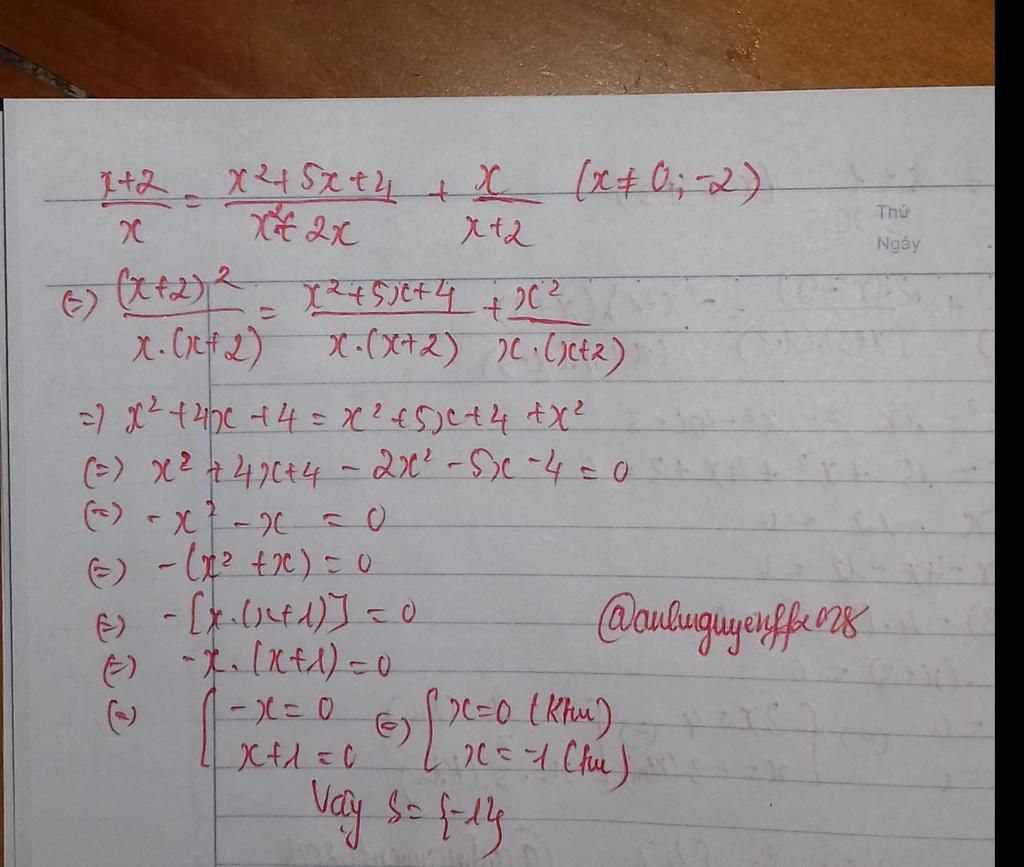 x+2/x = x²+5x+4/x²+2x + x/x+2 (x≠0;-2)
Thứ
Ngày
(=) (x+2)²/x.(x+2) = x²+5x+4/x.(x+2) + x²/x.(x+2)
=) x²+4x+4 = x²+5x+4+x²
(=) x²+4x+4-2x²-5x-4=0
(=) -x²-x = 0
(=) -(x²+x)=0
(=) -[x.(x+1)]=0
(=) -x.(x+1)=0
(=) [-x=0 (=) [x=0 (Ktm)
x+1=0 x=-1 (tm)
Vậy S={-1}